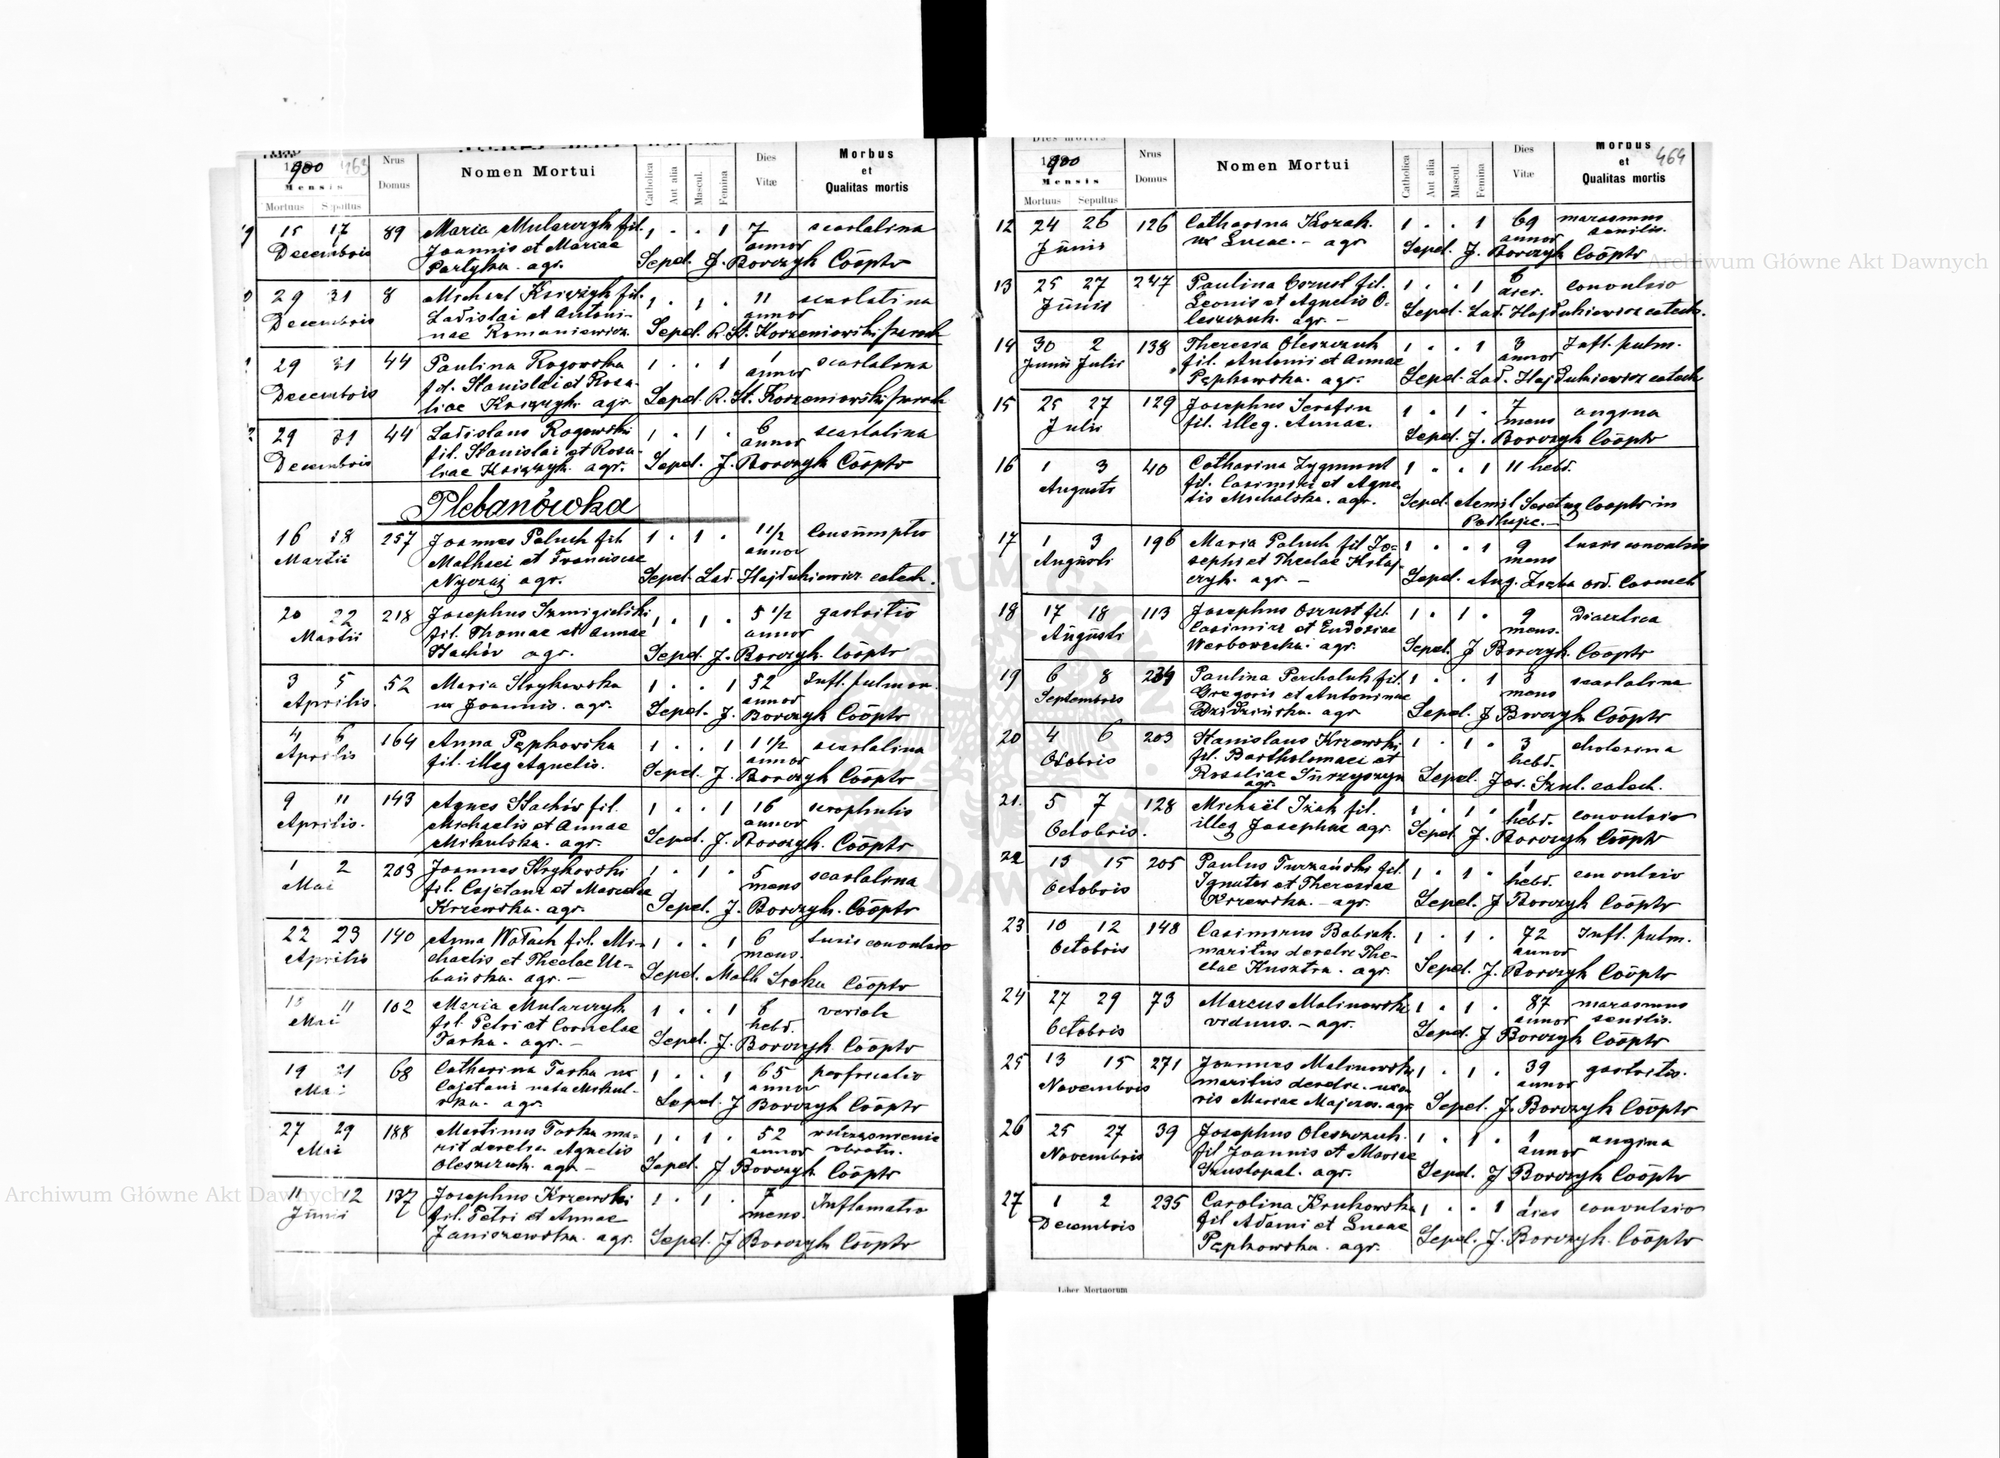 1900 463
Mensis
Mortuus Sepultus
Nrus Domus
Nomen Mortui
Catholica
Aut alia
Mascul.
Femina
Dies Vitæ
Morbus et Qualitas mortis
15 17 89 Maria Mularczyk fil. 1 . . 1 7 scarlatina
Decembris Joannis et Mariae annor
Partyka. agr. Sepel. J. Borczyk Coöptr
29 31 8 Michael Księżyk fil. 1 . 1 . 11 scarlatina
Decembris Ladislai et Antoni- annor
nae Romaniewicz. Sepel. R. St. Korzeniowski paroch
29 31 44 Paulina Rogowska 1 . . 1 1 scarlatina
Decembris fil. Stanislai et Rosa- annor
liae Księżyk. agr. Sepel. R. St. Korzeniowski paroch
29 31 44 Ladislaus Rogowski 1 . 1 . 6 scarlatina
Decembris fil. Stanislai et Rosa- annor
liae Księżyk. agr. Sepel. J. Borczyk Coöptr
Plebanówka
16 18 257 Joannes Paluch fil. 1 . 1 . 1 1/2 Consumptio
Martii Mathaei et Franciscae annor
Nyczaj agr. Sepel. Lad. Hajdukiewicz catech.
20 22 218 Josephus Szmigielski 1 . 1 . 5 1/2 gastritis
Martii fil. Thomae et Annae annor
Stachów agr. Sepel. J. Borczyk. Coöptr
3 5 52 Maria Strykowska 1 . . 1 52 Infl. pulmon.
Aprilis. ux Joannis. agr. annor
Sepel. J. Borczyk Coöptr
4 6 164 Anna Pępkowska 1 . . 1 1 1/2 scarlatina
Aprilis fil. illeg Agnetis. annor
Sepel. J. Borczyk Coöptr
9 11 143 Agnes Stachów fil. 1 . . 1 16 scrophulis
Aprilis. Michaelis et Annae annor
Mikulska. agr. Sepel. J. Borczyk. Coöptr
1 2 203 Joannes Strykowski 1 . 1 . 5 scarlatina
Mai fil. Cajetani et Marcelae mens
Krzewska. agr. Sepel. J. Borczyk. Coöptr
22 23 140 Anna Wołach fil. Mi- 1 . . 1 6 tussis convulsiv
Aprilis chaelis et Theclae Ur- mens.
bańska. agr. — Sepel. Math Sroka Coöptr
11 102 Maria Mularczyk 1 . . 1 8 variola
Mai fil. Petri et Corneliae hebd.
Tarka. agr. — Sepel. J. Borczyk. Coöptr
19 21 68 Catharina Tarka ux 1 . . 1 65 perfricatio
Mai Cajetani nata Mikul- annor
ska. agr. Sepel. J Borczyk Coöptr
27 29 188 Martinus Tarka ma- 1 . 1 . 52
Mai rit derelic. Agnetis annor
Oleszczuk. agr — Sepel. J Borczyk Coöptr
11 12 137 Josephus Krzewski 1 . 1 . 7 Inflamatio
Junii fil. Petri et Annae mens.
Janiszewska. agr. Sepel. J Borczyk Coöptr
Dies mortis
1900
Mensis
Mortuus Sepultus
Nrus Domus
Nomen Mortui
Catholica
Aut alia
Mascul.
Femina
Dies Vitæ
Morbus et Qualitas mortis 464
12 24 26 126 Catharina Kozak. 1 . . 1 69 marasmus
Junii ux Lucae. — agr. annor senilis.
Sepel. J. Borczyk Coöptr
13 25 27 247 Paulina Oszust fil. 1 . . 1 6 convulsio
Junii Leonis et Agnetis O- dier.
leszczuk. agr. — Sepel. Lad. Hajdukiewicz catech.
14 30 2 138 Theresia Oleszczuk 1 . . 1 3 Infl. pulm.
Junii Julii fil. Antonii et Annae annor
Pępkowska. agr. Sepel. Lad. Hajdukiewicz catech
15 25 27 129 Josephus Serafin 1 . 1 . 7 angina
Julii fil. illeg. Annae. mens
Sepel. J. Borczyk Coöptr
16 1 3 40 Catharina Zygmunt 1 . . 1 11 hebd.
Augusti fil. Casimiri et Agne-
tis Michalska. agr. Sepel. Aemil Coöptr in
Podhajce. —
17 1 3 196 Maria Paluch fil Jo- 1 . . 1 9 tussis convulsiv
Augusti sephi et Theclae Krzaj- mens
czyk. agr. — Sepel. Aug. ord. Carmel
18 17 18 113 Josephus Oszust fil. 1 . 1 . 9 Diaerrhea
Augusti Casimiri et Eudoxiae mens.
Werbowecka. agr. Sepel. J Borczyk. Coöptr
19 6 8 234 Paulina Perchaluk fil. 1 . . 1 3 scarlatina
Septembris Gregorii et Antoninae mens
Dzidzińska. agr Sepel. J Borczyk Coöptr
20 4 6 203 Stanislaus Krzewski 1 . 1 . 3 cholerina
Octobris fil. Bartholomaei et hebd.
Rosaliae Surzyszyn agr. Sepel. Jos. Szul. catech.
21. 5 7 128 Michaël Izak fil. 1 . 1 . 1 convulsio
Octobris. illeg Josephae agr. hebd.
Sepel. J. Borczyk Coöptr
22 13 15 205 Paulus Turzański fil. 1 . 1 . 1 convulsio
Octobris Ignatii et Theresiae hebd.
Krzewska. — agr. Sepel. J Borczyk Coöptr
23 10 12 148 Casimirus Babiak. 1 . 1 . 72 Infl. pulm.
Octobris maritus derelic The- annor
clae Kusztra. agr. Sepel. J. Borczyk Coöptr
24 27 29 73 Marcus Malinowski 1 . 1 . 87 marasmus
Octobris viduus. — agr. annor senilis.
Sepel. J Borczyk Coöptr
25 13 15 271 Joannes Malinowski 1 . 1 . 39 gastritis.
Novembris maritus derelic. uxo- annor
ris Mariae Majczas. agr Sepel. J. Borczyk Coöptr
26 25 27 39 Josephus Oleszczuk. 1 . 1 . 1 angina
Novembris fil Joannis et Mariae annor
Szustopal. agr. Sepel. J Borczyk Coöptr
27 1 2 235 Carolina Krukowska 1 . . 1 1 dies convulsio
Decembris fil Adami et Lucae
Pępkowska. agr. Sepel. J. Borczyk. Coöptr
Liber Mortuorum
Archiwum Główne Akt Dawnych
Archiwum Główne Akt Dawnych